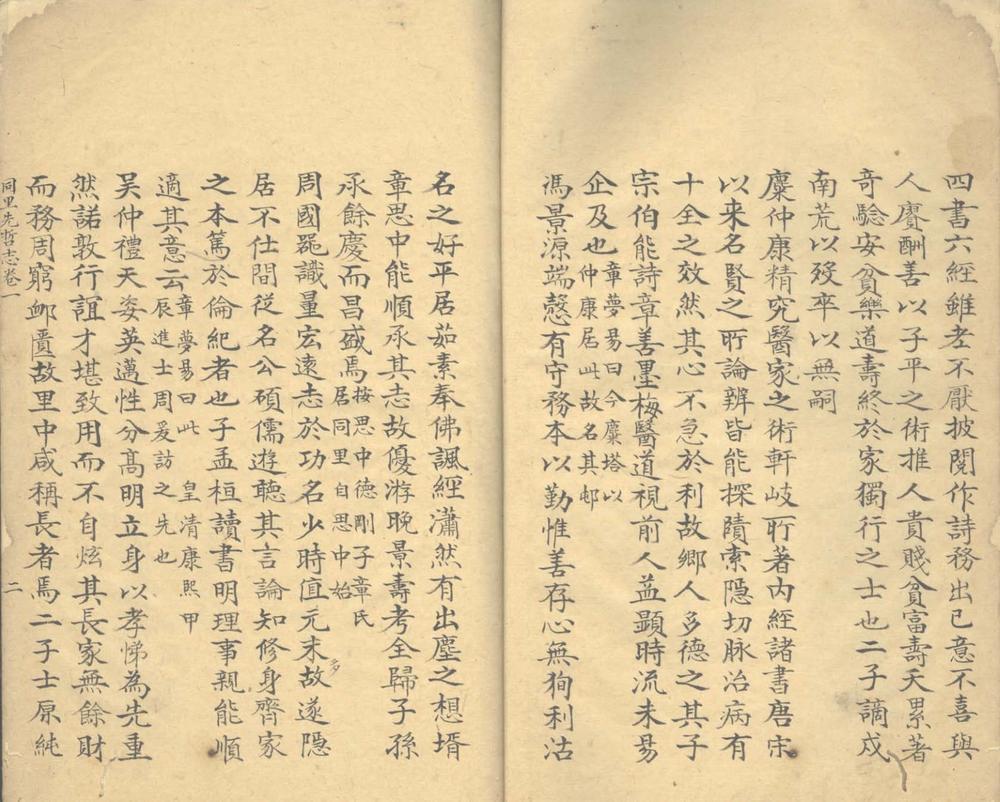 四書六經雖老不厭披閱作詩務出己意不喜與
人賡酬善以子平之術推人貴賤貧富壽夭累著
奇驗安貧樂道壽終於家獨行之士也二子謫戍
南荒以歿卒以無嗣
麋仲康精究醫家之術軒岐所著內經諸書唐宋
以來名賢之所論辨皆能探賾索隱切脉治病有
十全之效然其心不急於利故鄉人多德之其子
宗伯能詩章善墨梅醫道視前人益顯時流未易
企及也章夢昜曰今麋塔以
仲康居此故名其邨
馮景源端愨有守務本以勤惟善存心無狥利沽
名之好平居茹素奉佛諷經瀟然有出塵之想壻
章思中能順承其志故優游晚景壽考全歸子孫
承餘慶而昌盛焉按思中德剛子章氏
居同里自思中始
周國㼁識量宏遠志於功名少時值元末多故遂隱
居不仕間從名公碩儒遊聽其言論知修身齊家
之本篤於倫紀者也子孟桓讀書明理事親能順
適其意云章夢昜曰此皇清康熙甲
辰進士周爰訪之先也
吴仲禮天姿英邁性分高明立身以孝悌為先重
然諾敦行誼才堪致用而不自炫其長家無餘財
而務周窮卹匱故里中咸稱長者焉二子士原純
同里先哲志卷一 二